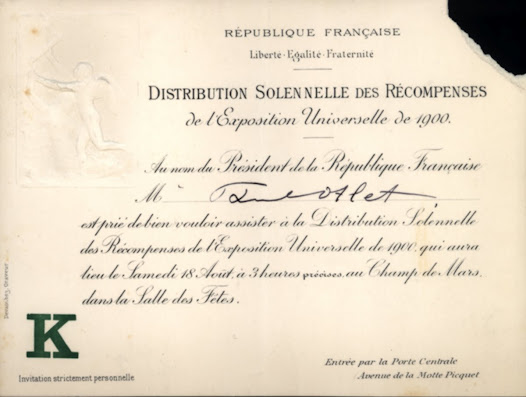 RÉPUBLIQUE FRANÇAISE
Liberté-Egalité-Fraternité
DISTRIBUTION SOLENNELLE DES RÉCOMPENSES
de l'Exposition Universelle de 1900.
Au nom du Président de la République Française
M Paul Otlet
est prié de bien vouloir assister à la Distribution Solennelle
des Récompenses de l'Exposition Universelle de 1900, qui aura
lieu le Samedi 18 Août, à 3 heures précises, au Champ de Mars,
dans la Salle des Fêtes.
K
Invitation strictement personnelle
Entrée par la Porte Centrale
Avenue de la Motte Picquet